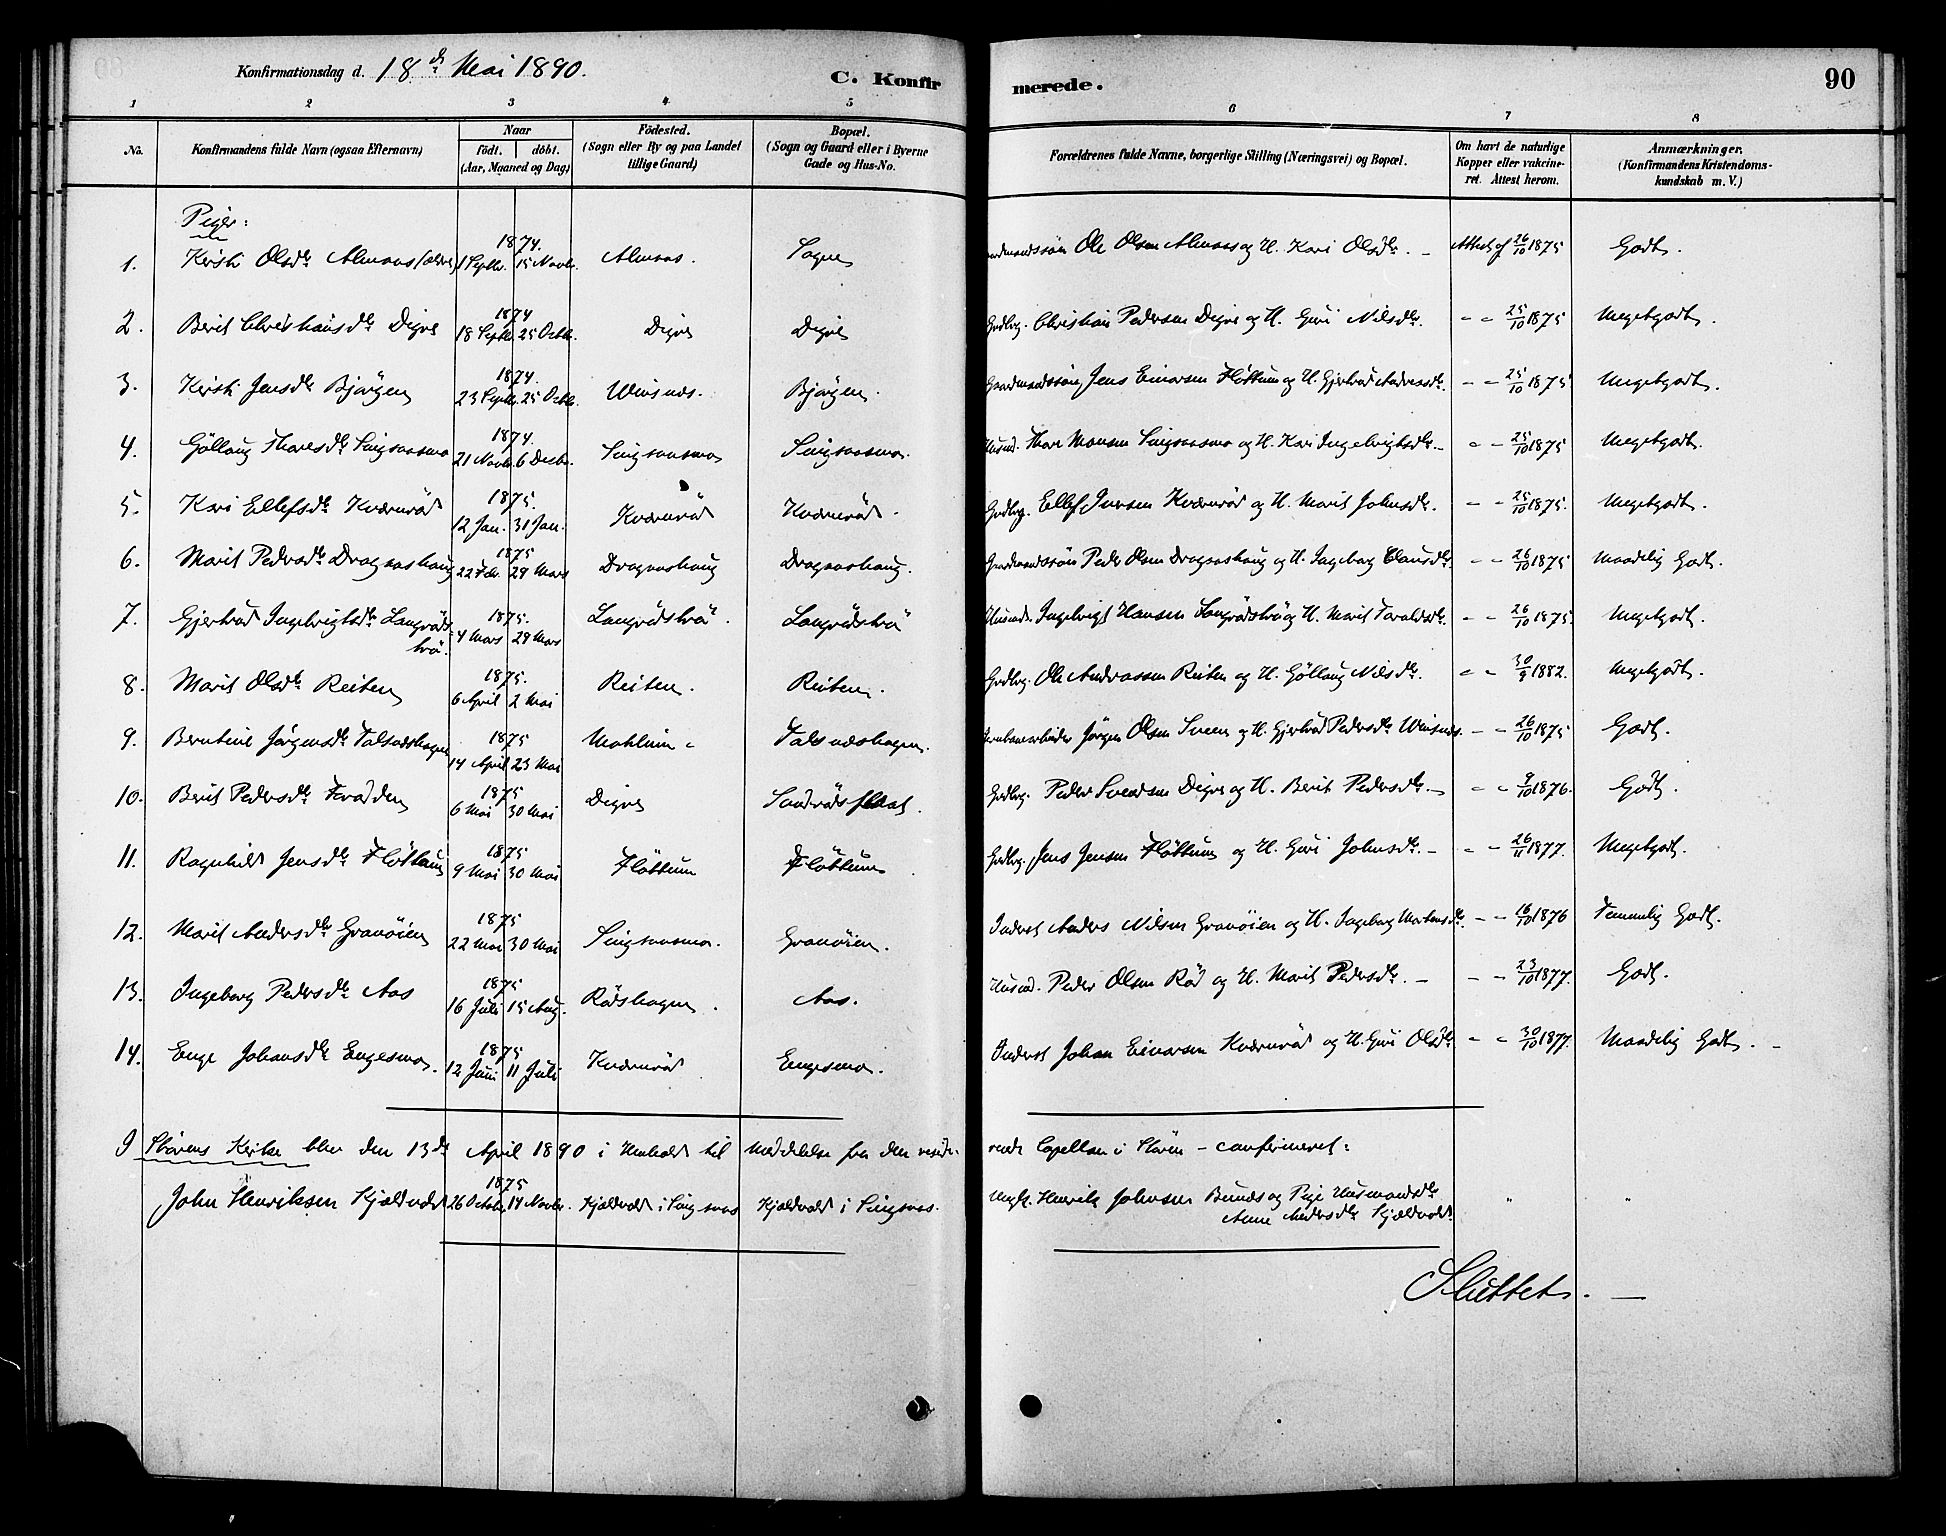 Konfirmationsdag d. 18de Mai 1890.
C. Konfir
merede.
90
1 2 3 4 5 6 7 8
No.
Konfirmandens fulde Navn (ogsaa Efternavn)
Naar
födt. döbt.
(Aar, Maaned og Dag)
Födested.
(Sogn eller By og paa Landet
tillige Gaard)
Bopæl.
(Sogn og Gaard eller i Byerne
Gade og Hus-No.
Forældrenes fulde Navne, borgerlige Stilling (Næringsvei) og Bopæl.
Om havt de naturlige
Kopper eller vakcine-
ret. Attest herom.
Anmærkninger.
(Konfirmandens Kristendoms-
kundskab m. V.)
Piger:
1. Kirsti Olsdtr Almaas 1874. 1 Septbr. 15 Novbr. Almaas. Ole Olsen Almaas og H. Kari Olsdtr. Attest af 26/10 1875 Godt.
2. Berit Christiansdtr Digre 1874 18 Septbr. 25 Octbr. Digre Digre Grdbrg. Christian Pedersen Digre og H. Guri Nilsdtr. - - 25/10 1875 Megetgodt.
3. Kirsti Jensdtr Bjørgen 1874. 23 Septbr. 25 Octbr. Winsnes. Bjørgen. Gaardmandssøn Jens Einarsen Fløttum og H. Gjertrud Andersdtr. - - 25/10 1875 Megetgodt.
4. Gøllaug Thoresdtr Singsaasmo 1874. 21 Novbr. 6 Decbr. Singsaasmo Singsaasmo. Husmd. Thore Monsen Singsaasmo og H. Kari Ingebrigtsdtr. - - 25/10 1875 Megetgodt.
5. Kari Ellefsdtr Kværnrød 1875. 12 Jan. 31 Jan. Kværnrød Kværnrød. Grdbrg. Ellef Iversen Kværnrød og H. Marit Johnsdtr. - - 25/10 1875. Megetgodt.
6. Marit Pedersdtr Dragaashaug 1875 22 Febr. 29 Mars Dragaashaug Dragaashaug. Gaardmandssøn Peder Olsen Dragaashaug og H. Ingeborg Clausdtr. - - 26/10 1875 Maadelig Godt.
7. Gjertrud Ingebrigtsdtr Langrøds-
trø. 1875. 4 Mars 29 Mars Langrødstrø. Langrødstrø Husmd. Ingebrigt Hansen Langrødstrø og H. Marit Taraldsdtr. - - 26/10 1875. Megetgodt.
8. Marit Olsdtr Reiten 1875. 6 April 2 Mai Reiten. Reiten. Grdbrg. Ole Andreassen Reiten og H. Gøllaug Nilsdtr. - - 30/9 1882. Megetgodt.
9. Berntine Jørgensdtr Talsneshagen 1875 14 April 23 Mai Talsneshagen. Jernbanearbeider Jørgen Olsen Sveen og H. Gjertrud Pedersdtr Winsnes. - - 26/10 1875 Godt.
10. Berit Pedersdtr 1875 6 Mai 30 Mai Digre Grdbrg. Peder Svendsen Digre og H. Berit Pedersdtr. - - 9/10 1876. Godt.
11. Ragnhild Jensdtr Fløttum 1875 9 Mai 30 Mai Fløttum Fløttum Grdbrg. Jens Jensen Fløttum og H. Guri Johnsdtr. - - 26/11 1877. Megetgodt.
12. Marit Andersdtr Granøien 1875 22 Mai 30 Mai Singsaasmo. Granøien. Inderst Anders Nilsen Granøien og H. Ingeborg Mortensdtr. - - 16/10 1876 Temmelig Godt.
13. Ingeborg Pedersdtr Aas 1875 16 Juli 15 Aug. Rødshagen. Aas. Husmd. Peder Olsen Rød og H. Marit Pedersdtr. - - 23/10 1877. Godt.
14. Enge Johansdtr Engesmo. 1875 12 Juni 11 Juli Kværnrød Engesmo. Inderst Johan Einarsen Kværnrød og H. Guri Olsdtr - - 30/10 1877. Maadelig Godt.
I Størens Kirke blev den 13de April 1890 i Henhold til Meddelelse fra den reside-
rende Capellan i Støren - confirmeret:
John Henriksen Kjældvold 1875 26 October 14 Novbr. Kjældvold i Singsaas Kjældvold i Singsaas. Ungk. Henrik Johnsen Bunds og Pige Husmandsdtr
Anne Andersdtr Kjældvold. " "
Sluttet.